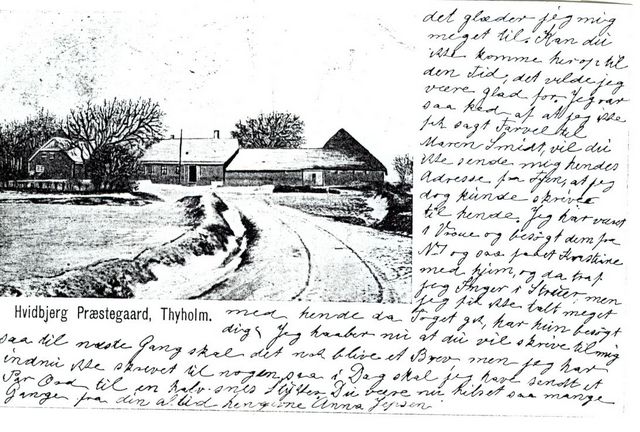 det glæder jeg mig
meget til. Kan du
ikke komme herop til
den Tid, det vilde jeg
være glad for. Jeg var
saa ked af at jeg ikke
fik sagt Farvel til
Maren Smidt, vil du
ikke sende mig hendes
Adresse paa Fyen, at jeg
dog kunde skrive
til hende. Jeg har været
i og besøgt dem fra
og saa
med hjem, og da traf
jeg Inger i Struer, men
jeg fik ikke talt meget
Hvidbjerg Præstegaard, Thyholm.
med hende da Toget gik, har hun besøgt
dig? Jeg haaber nu at du vil skrive til mig
saa til næste Gang skal det nok blive et Brev men jeg har
indnu ikke skrevet til nogen, saa i Dag skal jeg have sendt et
Par Ord til en halv snes Stykker. Du være nu hilset saa mange
Gange fra din altid hengivne Anna Jepsen